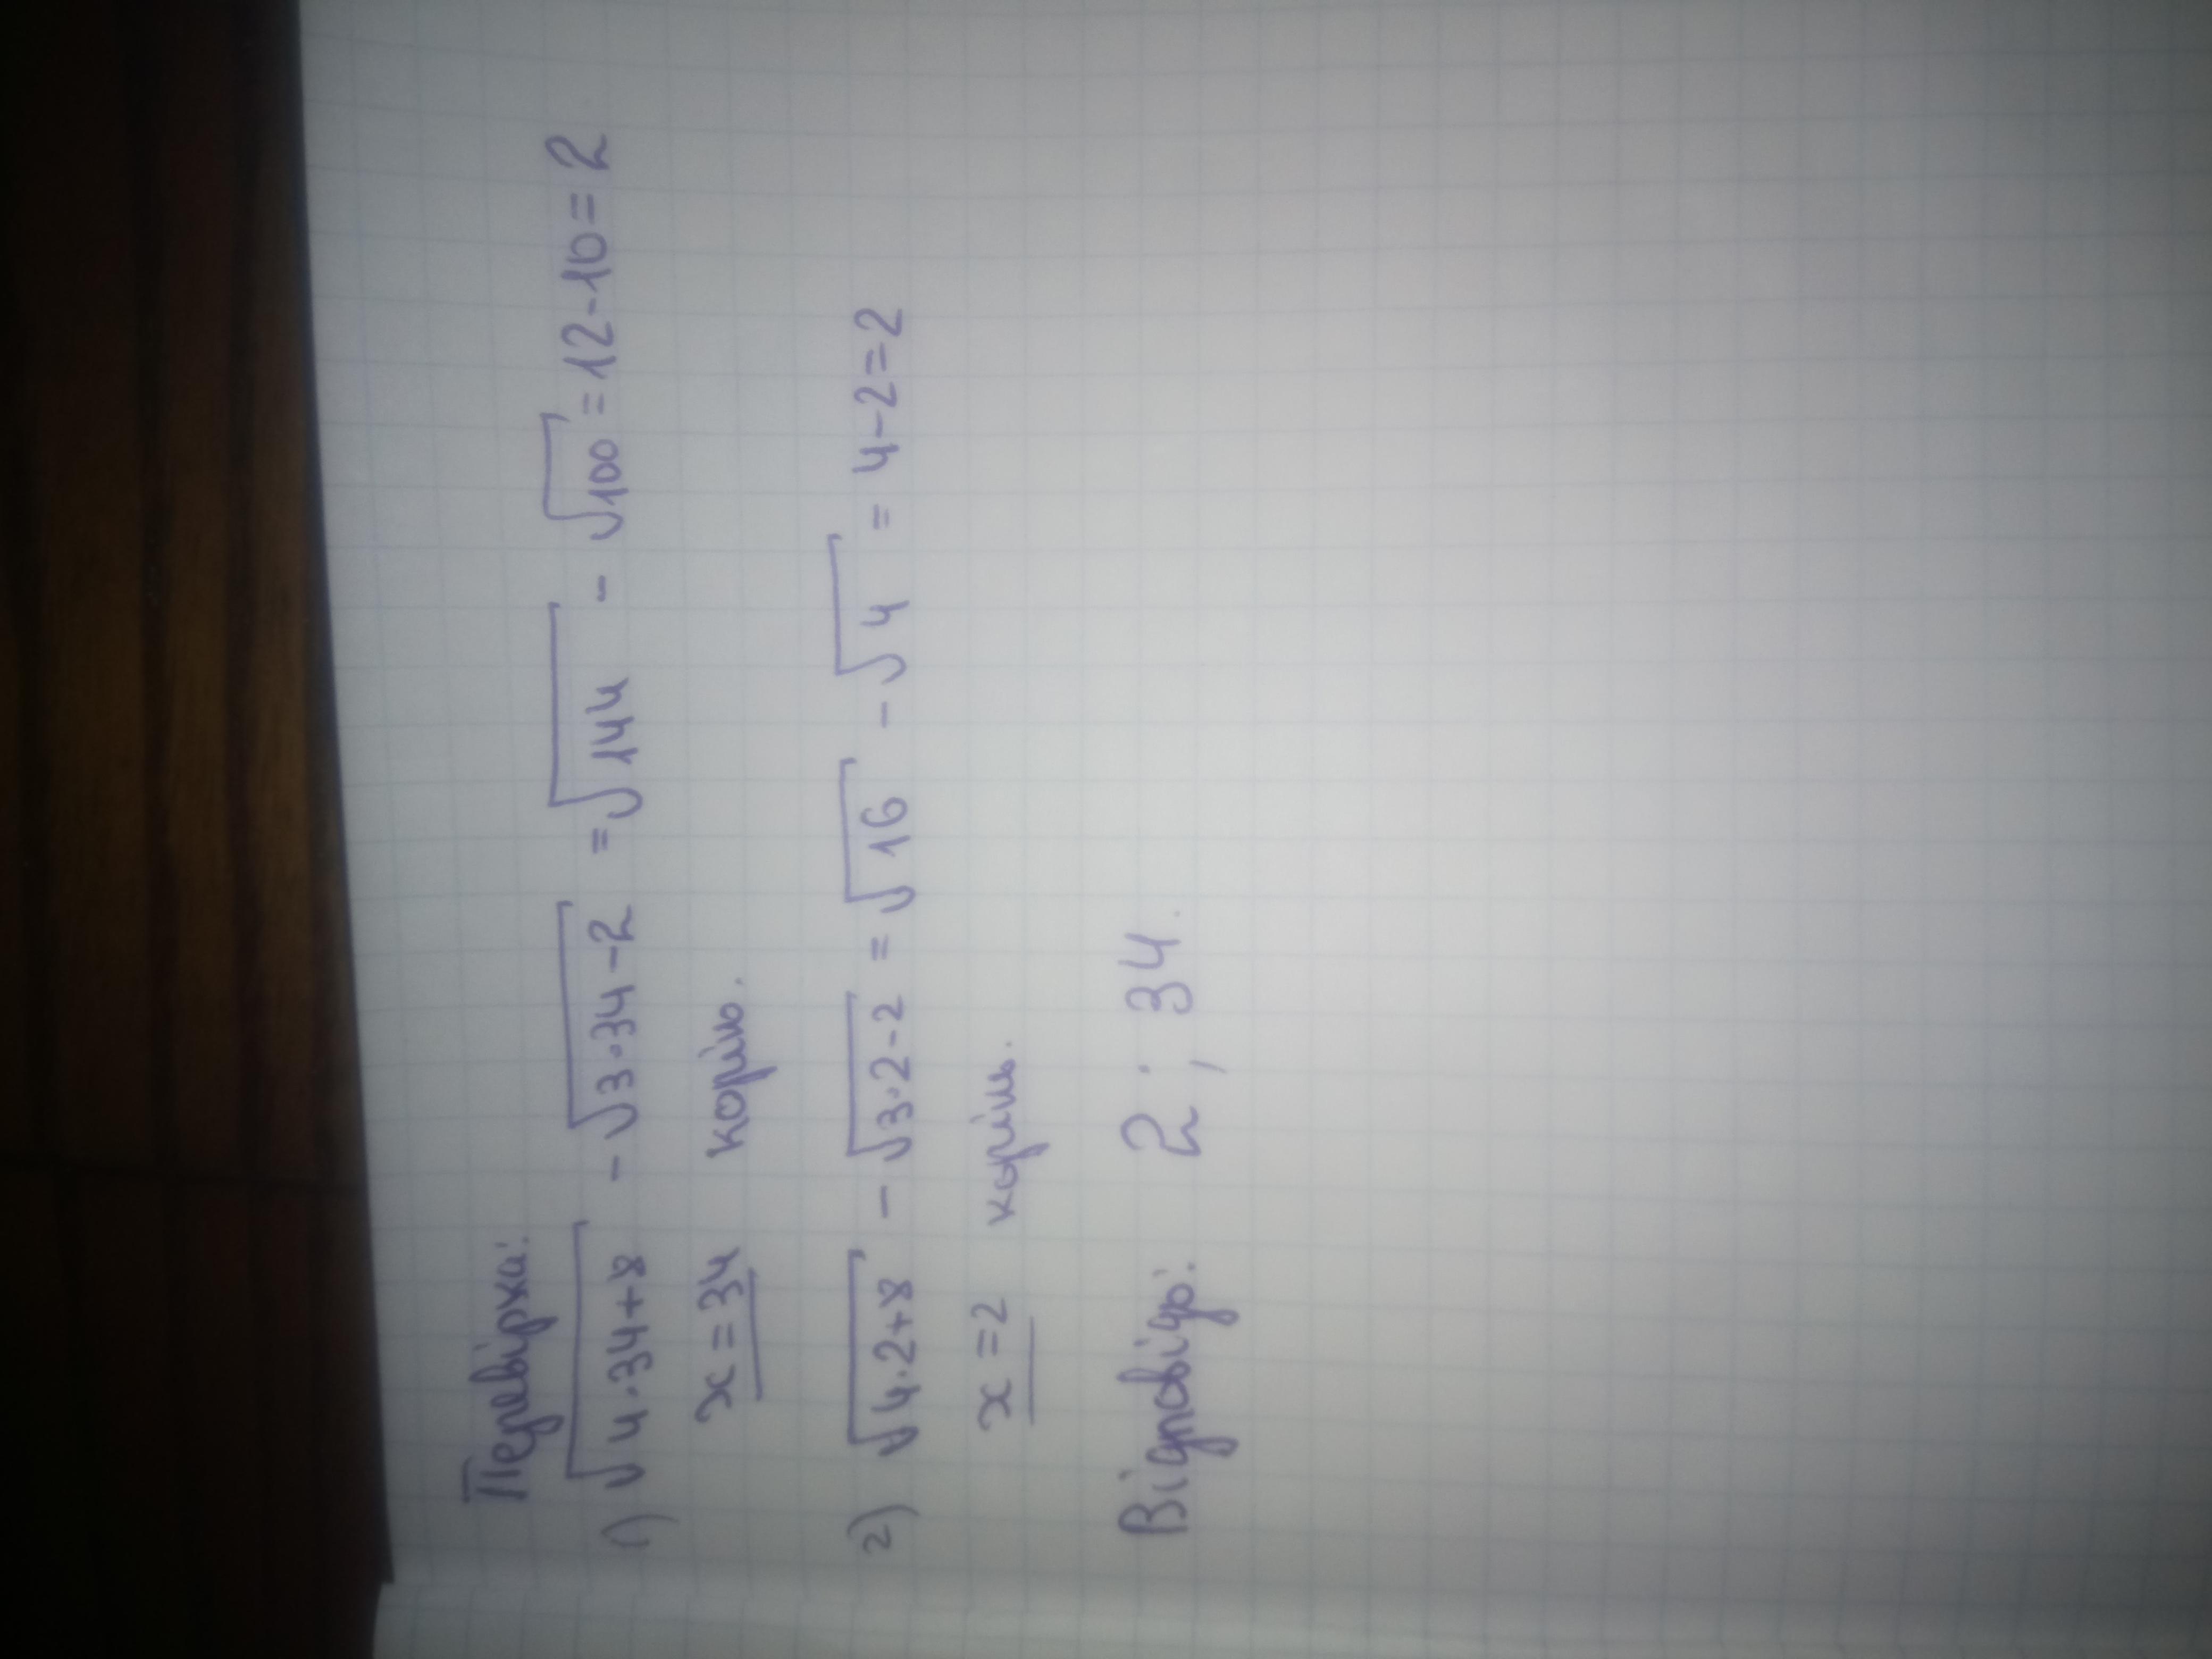 Перевірка:
1) √4·34+8 - √3·34-2 = √144 - √100 = 12-10=2
x=34 корінь.
2) √4·2+8 - √3·2-2 = √16 - √4 = 4-2=2
x=2 корінь.
Відповідь: 2; 34.